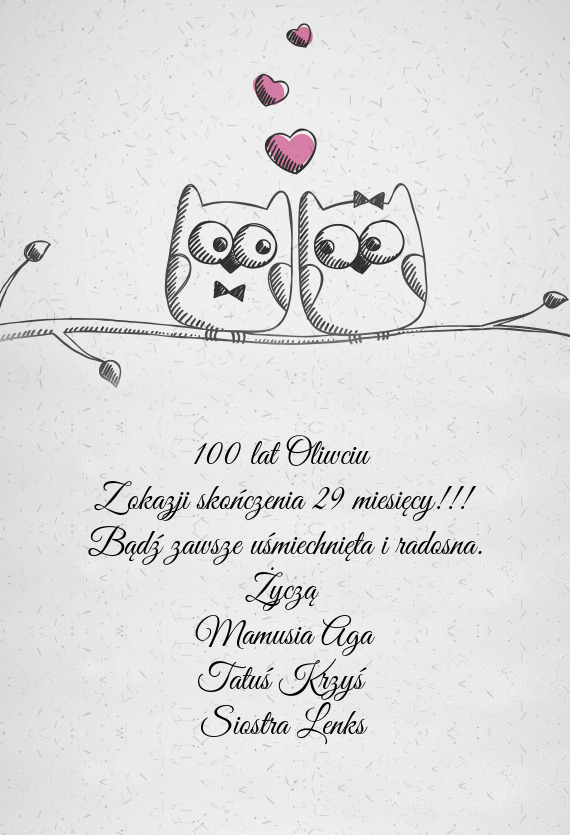 100 lat Oliwciu
Zokazji skończenia 29 miesięcy!!!
Bądź zawsze uśmiechnięta i radosna.
Życzą
Mamusia Aga
Tatuś Krzyś
Siostra Lenks